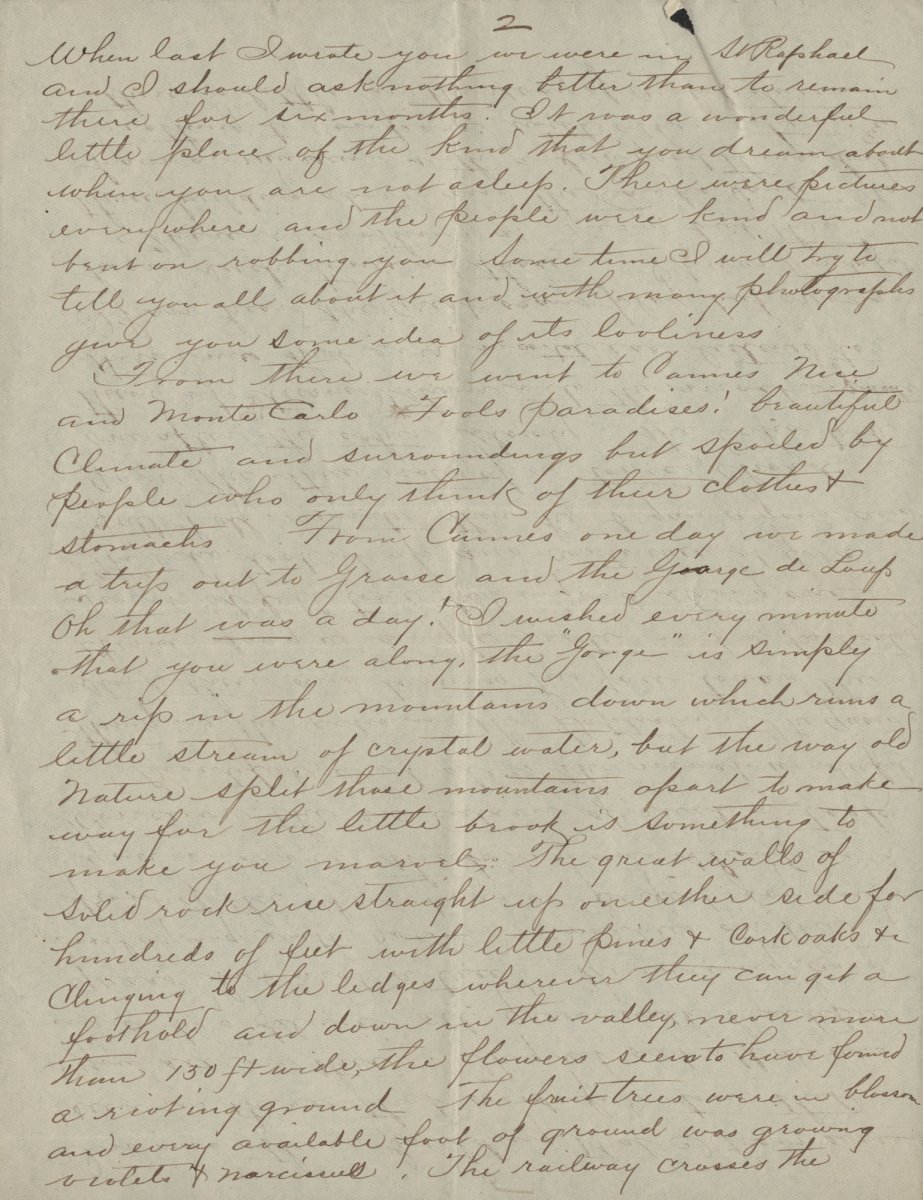 2
When last I wrote you we were in St Raphael
and I should ask nothing better than to remain
there for six months. It was a wonderful
little place of the kind that you dream about
when you are not asleep. There were pictures
everywhere and the people were kind and not
bent on robbing you Some time I will try to
tell you all about it and with many photographs
give you some idea of its looliness
From there we went to Cannes Nice
and Monte Carlo Fools paradises! beautiful
Climate and surroundings but spoiled by
people who only think of their clothes &
stomachs From Cannes one day we made
a trip out to Grasse and the Gorge de Loup
Oh that was a day! I wished every minute
that you were along. the "Gorge" is simply
a rip in the mountains down which runs a
little stream of crystal water, but the way old
Nature split those mountains apart to make
way for the little brook is something to
make you marvel. The great walls of
solid rock rise straight up on either side for
hundreds of feet with little pines & Cork oaks &c
Clinging to the ledges wherever they can get a
foothold and down in the valley, never more
than 130 ft wide, the flowers seem to have found
a rioting ground The fruit trees were in blossom
and every available foot of ground was growing
violets & narcissus. The railway crosses the